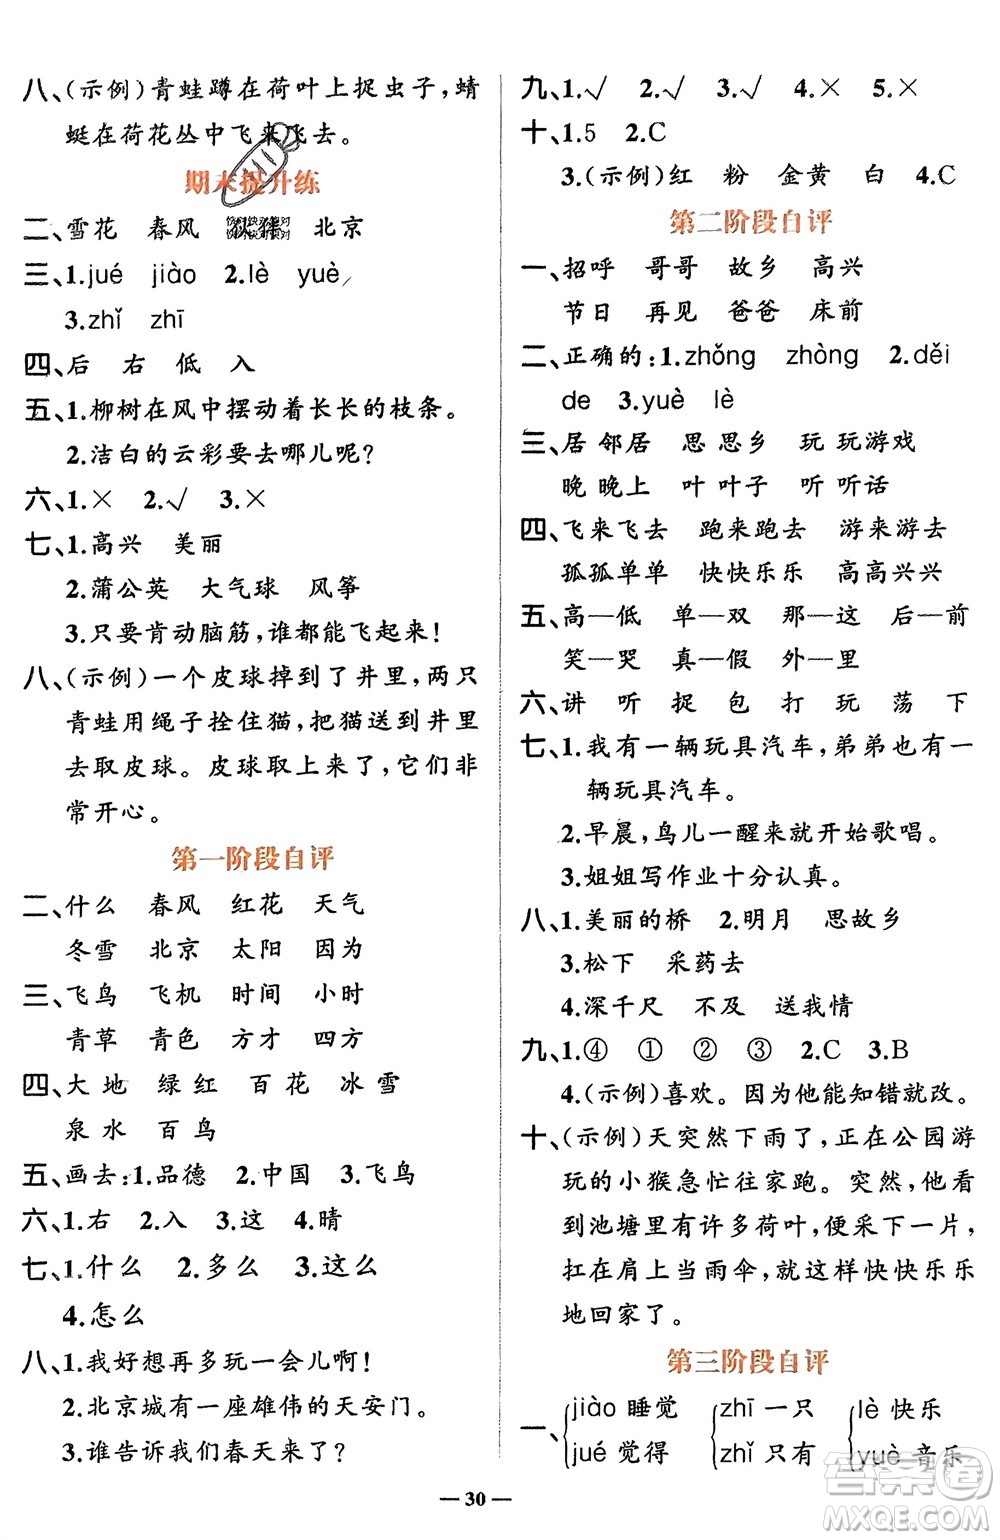 八、(示例)青蛙蹲在荷叶上捉虫子,蜻
蜓在荷花丛中飞来飞去。
期末提升练
二、雪花 春风 北京
三、1.jué jiào 2.lè yuè
3.zhǐ zhī
四、后 右 低 入
五、1.柳树在风中摆动着长长的枝条。
2.洁白的云彩要去哪儿呢?
六、1.× 2.√ 3.×
七、1.高兴 美丽
2.蒲公英 大气球 风筝
3.只要肯动脑筋,谁都能飞起来!
八、(示例)一个皮球掉到了井里,两只
青蛙用绳子拴住猫,把猫送到井里
去取皮球。皮球取上来了,它们非
常开心。
第一阶段自评
二、什么 春风 红花 天气
冬雪 北京 太阳 因为
三、飞鸟 飞机 时间 小时
青草 青色 方才 四方
四、大地 绿红 百花 冰雪
泉水 百鸟
五、画去:1.品德 2.中国 3.飞鸟
六、1.右 2.入 3.这 4.晴
七、1.什么 2.多么 3.这么
4.怎么
八、1.我好想再多玩一会儿啊!
2.北京城有一座雄伟的天安门。
3.谁告诉我们春天来了?
九、1.√ 2.√ 3.√ 4.× 5.×
十、1.5 2.C
3.(示例)红 粉 金黄 白 4.C
第二阶段自评
一、招呼 哥哥 故乡 高兴
节日 再见 爸爸 床前
二、正确的:1.zhǒng zhòng 2.děi
de 3.yuè lè
三、居 邻居 思 思乡 玩 玩游戏
晚 晚上 叶 叶子 听 听话
四、飞来飞去 跑来跑去 游来游去
孤孤单单 快快乐乐 高高兴兴
五、高—低 单—双 那—这 后—前
笑—哭 真—假 外—里
六、讲 听 捉 包 打 玩 荡 下
七、1.我有一辆玩具汽车,弟弟也有一
辆玩具汽车。
2.早晨,鸟儿一醒来就开始歌唱。
3.姐姐写作业十分认真。
八、1.美丽的桥 2.明月 思故乡
3.松下 采药去
4.深千尺 不及 送我情
九、1.④ ① ② ③ 2.C 3.B
4.(示例)喜欢。因为他能知错就改。
十、(示例)天突然下雨了,正在公园游
玩的小猴急忙往家跑。突然,他看
到池塘里有许多荷叶,便采下一片,
扛在肩上当雨伞,就这样快快乐乐
地回家了。
第三阶段自评
一、jiào 睡觉 zhī 一只 lè 快乐
jué 觉得 zhǐ 只有 yuè 音乐
30
答案圈
MXQE.COM